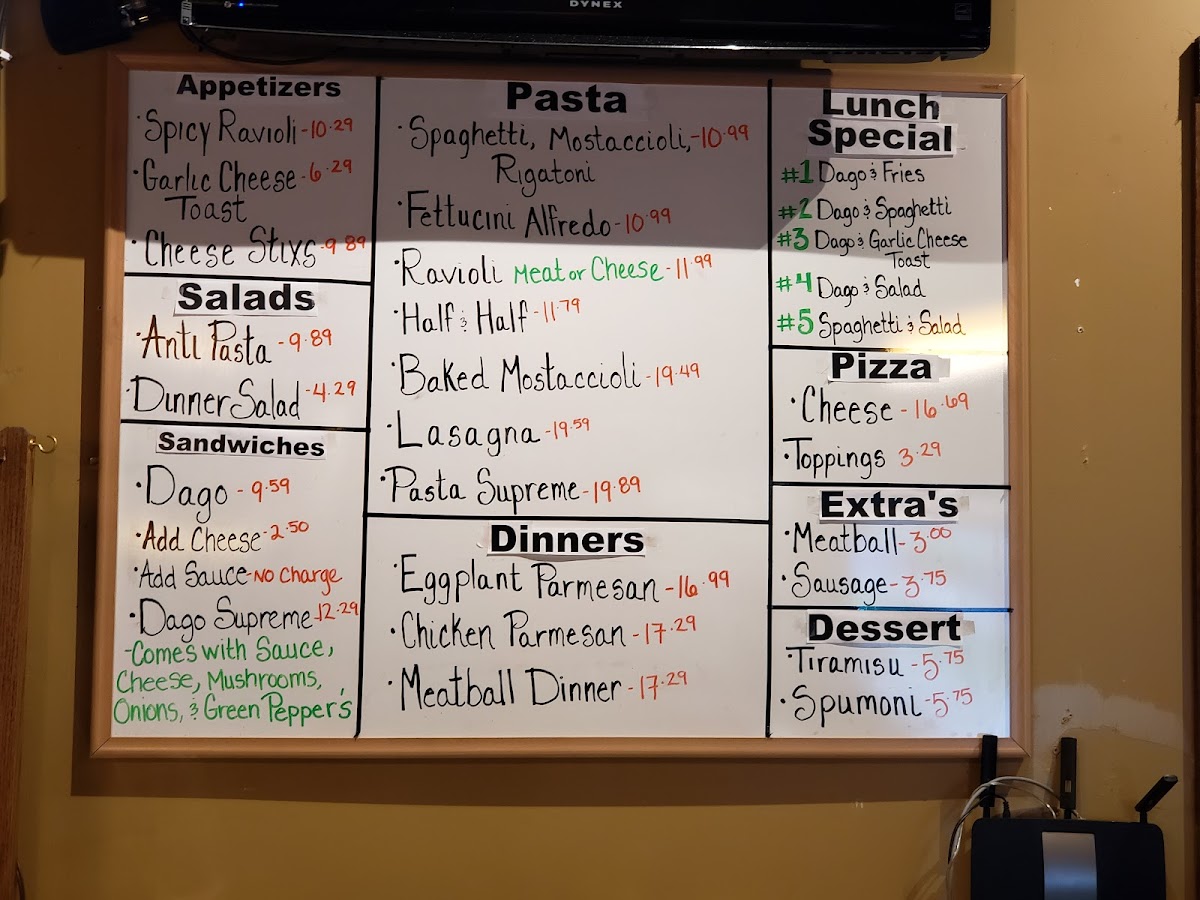 DYNEX
Appetizers
·Spicy Ravioli-10.29
·Garlic Cheese-6.29
Toast
·Cheese Stixs-9.89
Salads
·Anti Pasta-9.89
·Dinner Salad-4.29
Sandwiches
·Dago-9.59
·Add Cheese-2.50
·Add Sauce-No Charge
·Dago Supreme-12.29
-Comes with Sauce,
Cheese, Mushrooms,
Onions, & Green Pepper's
Pasta
·Spaghetti, Mostaccioli,-10.99
Rigatoni
·Fettucini Alfredo-10.99
·Ravioli Meat or Cheese-11.99
·Half & Half-11.79
·Baked Mostaccioli-19.49
·Lasagna-19.59
·Pasta Supreme-19.89
Dinners
·Eggplant Parmesan-16.99
·Chicken Parmesan-17.29
·Meatball Dinner-17.29
Lunch
Special
#1 Dago & Fries
#2 Dago & Spaghetti
#3 Dago & Garlic Cheese
Toast
#4 Dago & Salad
#5 Spaghetti & Salad
Pizza
·Cheese-16.69
·Toppings 3.29
Extra's
·Meatball-3.00
·Sausage-3.75
Dessert
·Tiramisu-5.75
·Spumoni-5.75